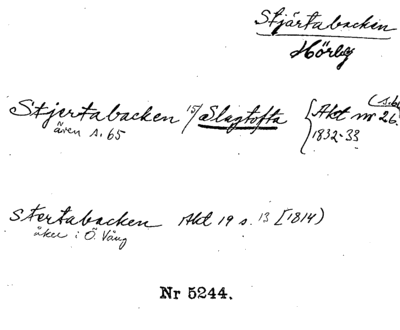 Stjärtabacken
Hörby
Stjertabacken 15/ Slagtofta { Akt nr 26.
även s. 65 1832-33
Stertabacken Akt 19 s. 13 [1814)
åker i Ö. Vång
Nr 5244.